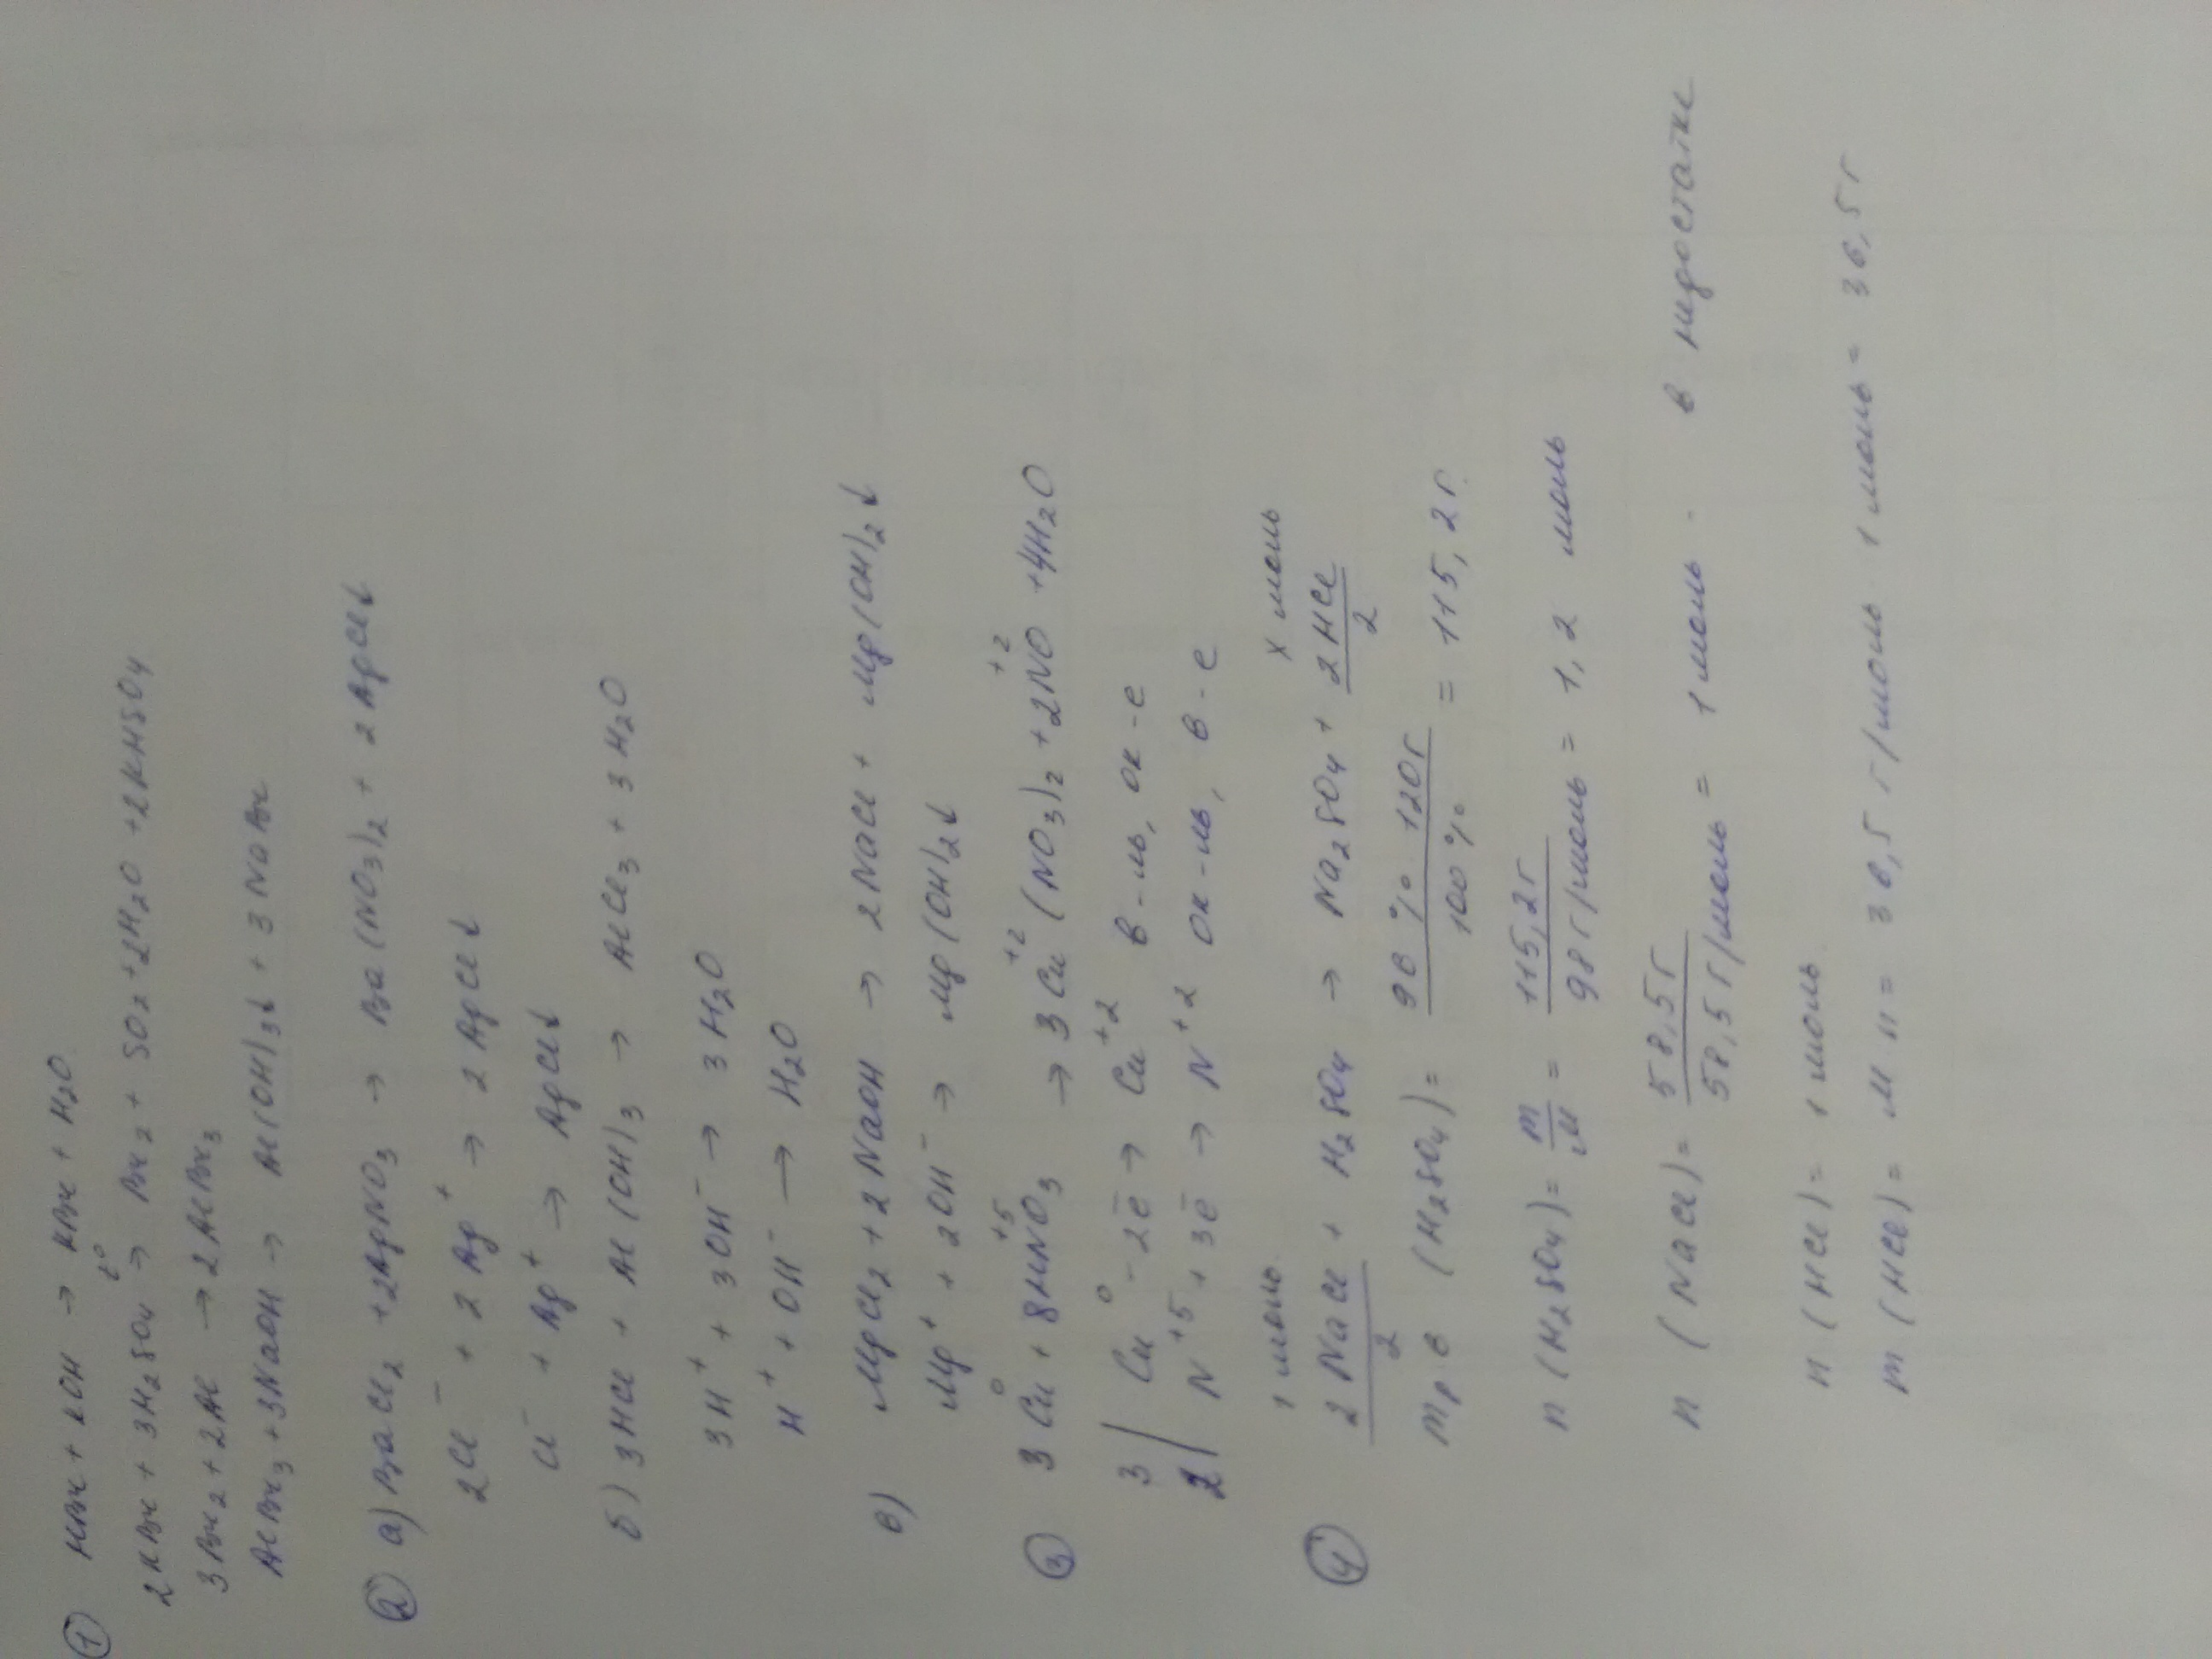 ① HBr + KOH → KBr + H₂O
2KBr + 3H₂SO₄ →t° Br₂ + SO₂ + 2H₂O + 2KHSO₄
3Br₂ + 2Al → 2AlBr₃
AlBr₃ + 3NaOH → Al(OH)₃↓ + 3NaBr
② а) BaCl₂ + 2AgNO₃ → Ba(NO₃)₂ + 2AgCl↓
2Cl⁻ + 2Ag⁺ → 2AgCl↓
Cl⁻ + Ag⁺ → AgCl↓
б) 3HCl + Al(OH)₃ → AlCl₃ + 3H₂O
3H⁺ + 3OH⁻ → 3H₂O
H⁺ + OH⁻ → H₂O
в) MgCl₂ + 2NaOH → 2NaCl + Mg(OH)₂↓
Mg⁺ + 2OH⁻ → Mg(OH)₂↓
③ 3Cu⁰ + 8HN⁺⁵O₃ → 3Cu⁺²(NO₃)₂ + 2N⁺²O + 4H₂O
3 | Cu⁰ - 2ē → Cu⁺² в-ль, ок-е
2 | N⁺⁵ + 3ē → N⁺² ок-ль, в-е
1 моль x моль
④ 2NaCl/2 + H₂SO₄ → Na₂SO₄ + 2HCl/2
mр в (H₂SO₄) = 96% · 120г / 100% = 115,2г.
n (H₂SO₄) = m/M = 115,2г / 98г/моль = 1,2 моль
n (NaCl) = 58,5г / 58,5г/моль = 1 моль - в недостатке
n (HCl) = 1 моль
m (HCl) = M n = 36,5 г/моль 1 моль = 36,5г